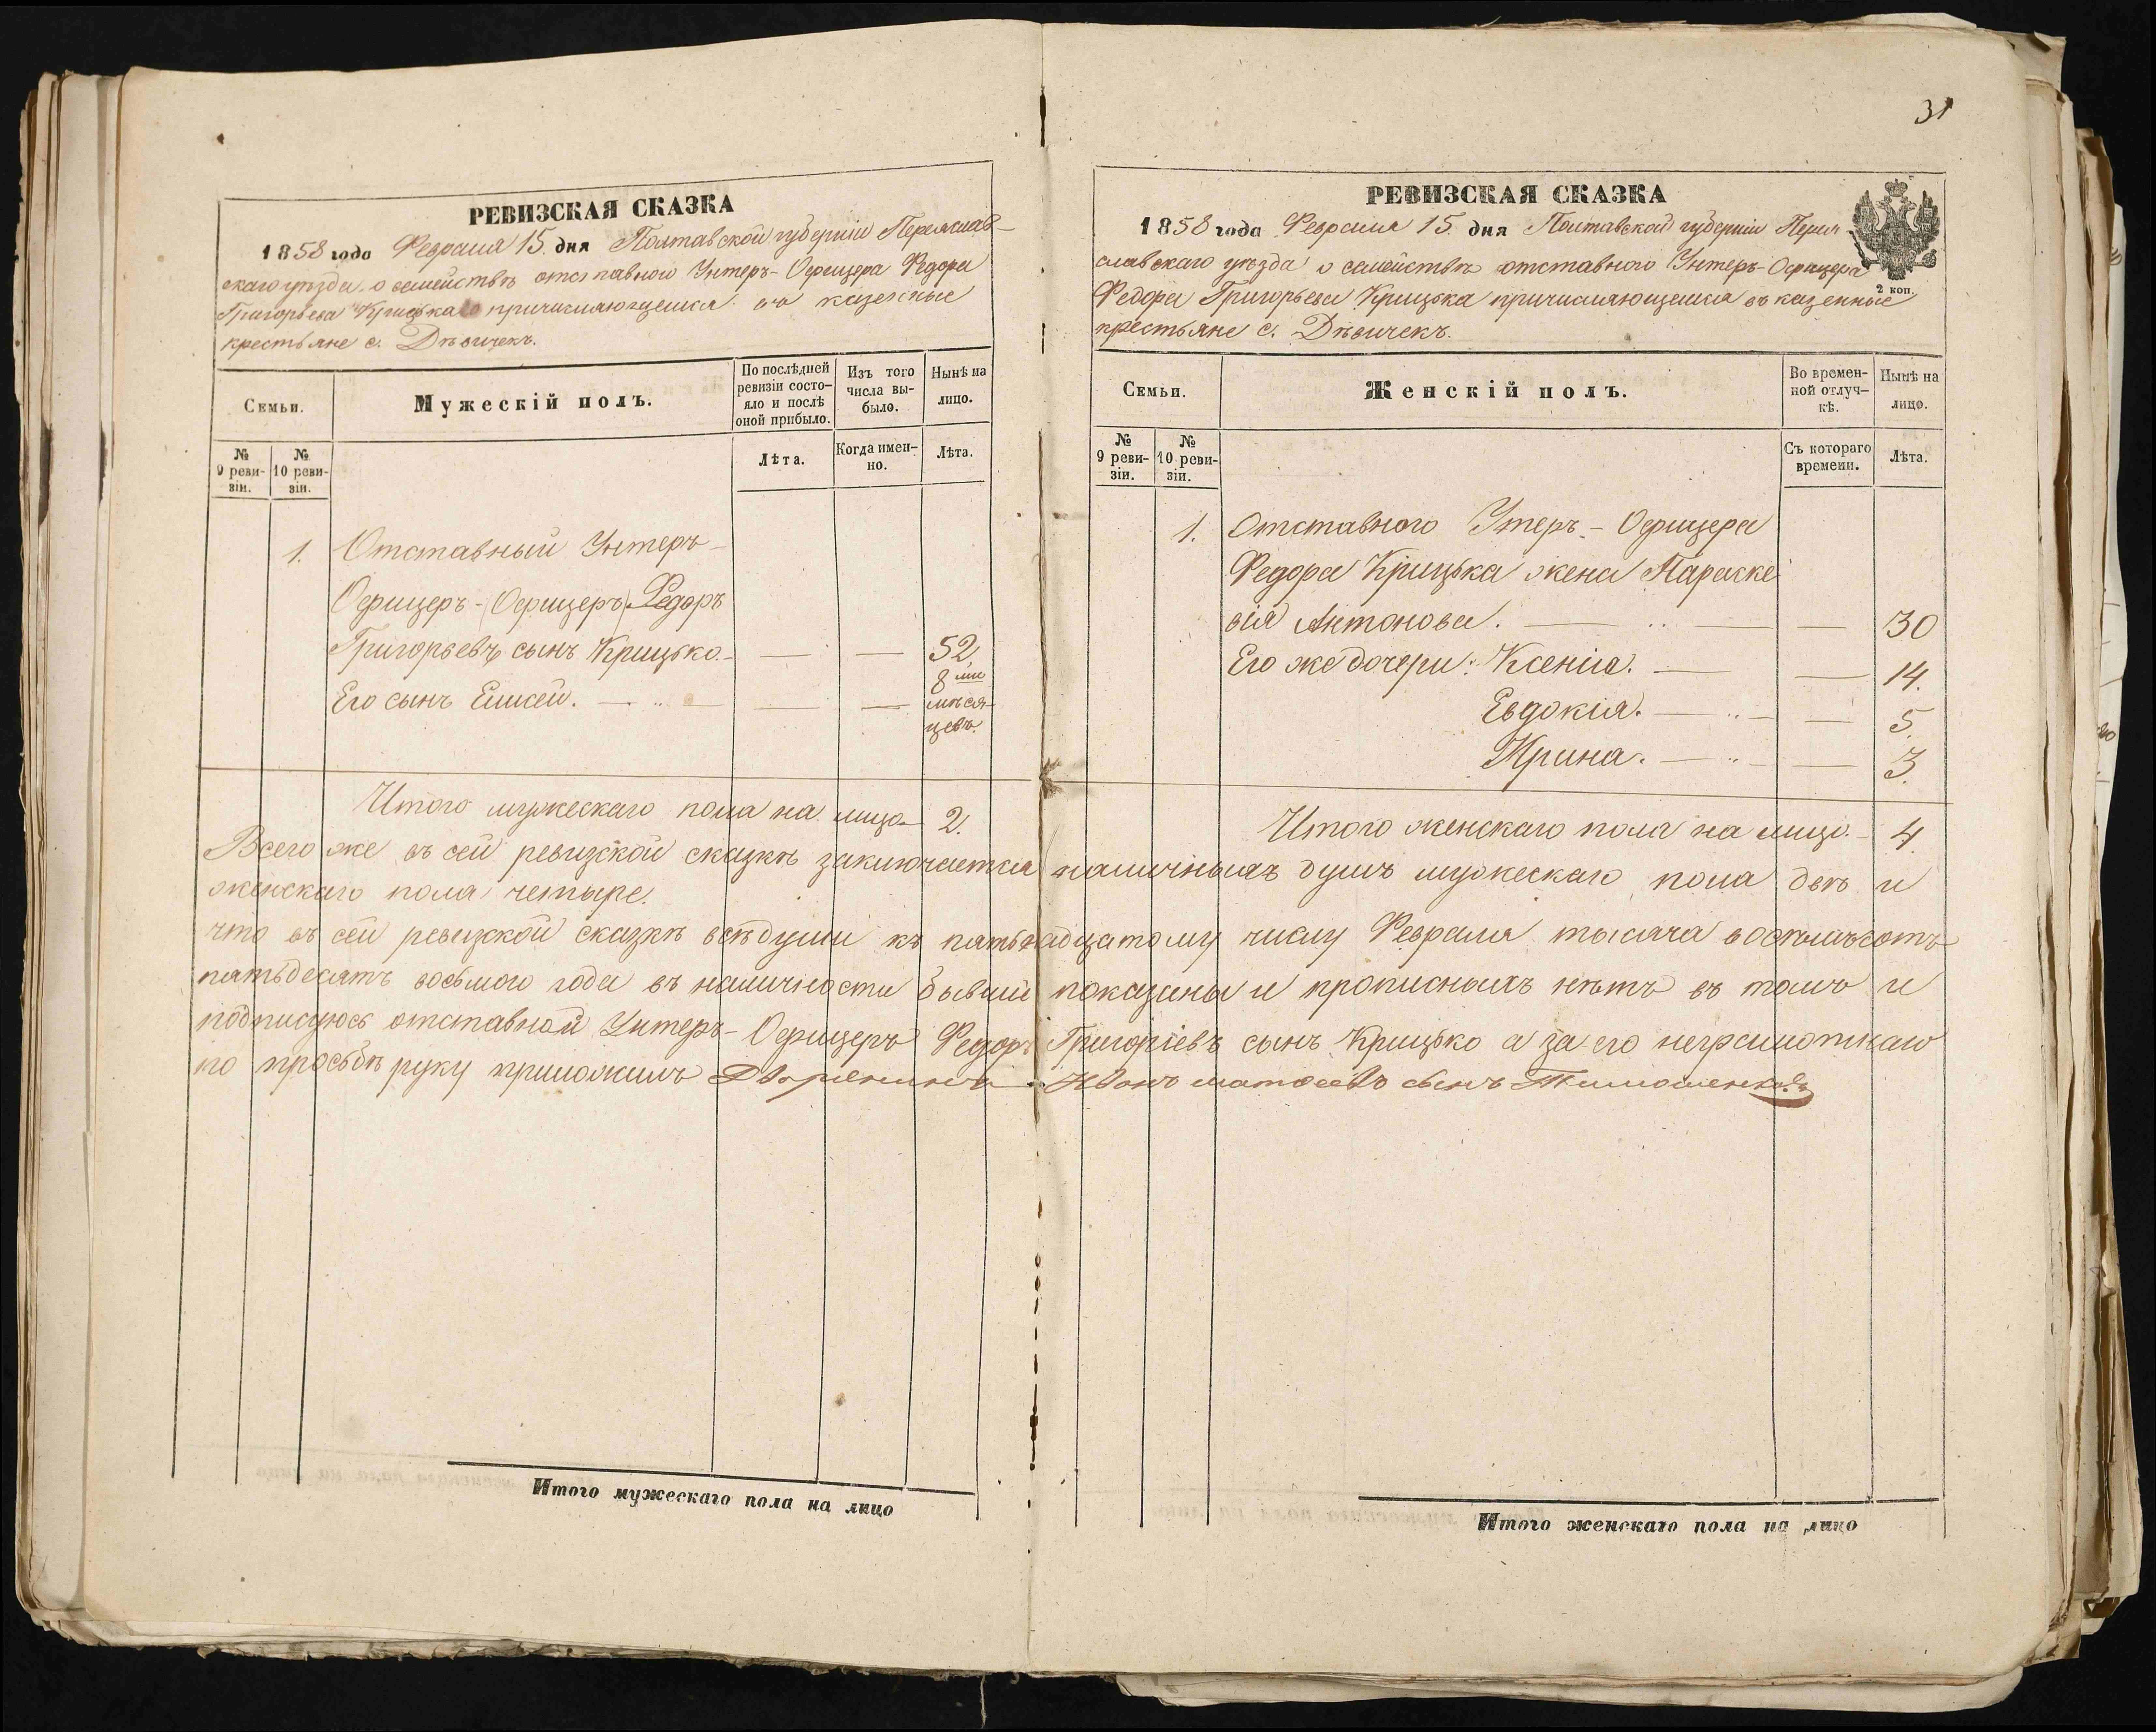 31
РЕВИЗСКАЯ СКАЗКА
1858 года Февраля 15. дня Полтавской губерніи Переяслав-
скаго уѣзда о семействѣ отставного Унтеръ-Офицера Федора
Григорьева Крицька причисляющемся въ казенные
крестьяне с. Дѣвичекъ.
Семьи.
Мужескій полъ.
По послѣдней
ревизіи состо-
яло и послѣ
оной прибыло.
Изъ того
числа вы-
было.
Нынѣ на
лицо.
№
9 реви-
зіи.
№
10 реви-
зіи.
Лѣта.
Когда имен-
но.
Лѣта.
1. Отставный Унтеръ-
Офицеръ-(Офицеръ) Федоръ
Григорьевъ сынъ Крицько. — — 52
Его сынъ Елисей. — „ — — — 8 ми
мѣся-
цевъ.
Итого мужескаго пола на лицо— 2.
РЕВИЗСКАЯ СКАЗКА
1858 года Февраля 15. дня Полтавской губерніи Перея-
славскаго уѣзда о семействѣ отставного Унтеръ-Офицера
2 коп.
Федора Григорьева Крицька причисляющемся въ казенные
крестьяне с. Дѣвичекъ.
Семьи.
Женскій полъ.
Во времен-
ной отлуч-
кѣ.
Нынѣ на
лицо.
№
9 реви-
зіи.
№
10 реви-
зіи.
Съ котораго
времени.
Лѣта.
1. Отставного Унтеръ-Офицера
Федора Крицька жена Параске
вія Антонова. — „ — — 30
Его же дочери: Ксенія. — — 14.
Евдокія. — „ — — 5.
Ирина. — „ — — 3.
Итого женскаго пола на лицо— 4.
Всего же въ сей ревизской сказкѣ заключается наличныхъ душъ мужескаго пола двѣ и
женскаго пола четыре.
что въ сей ревизкой сказкѣ всѣ души къ пятьнадцатому числу Февраля тысяча восемьсотъ
пятьдесятъ восьмого года въ наличности бывшіе показаны и прописныхъ нѣтъ въ томъ и
подписуюсь отставной Унтеръ-Офицеръ Федоръ Григоріевъ сынъ Крицько а за его неграмотнаго
по просьбѣ руку приложилъ Дворянинъ Иванъ матвеевъ сынъ Тимошенко
Итого мужескаго пола на лицо
Итого женскаго пола на лицо